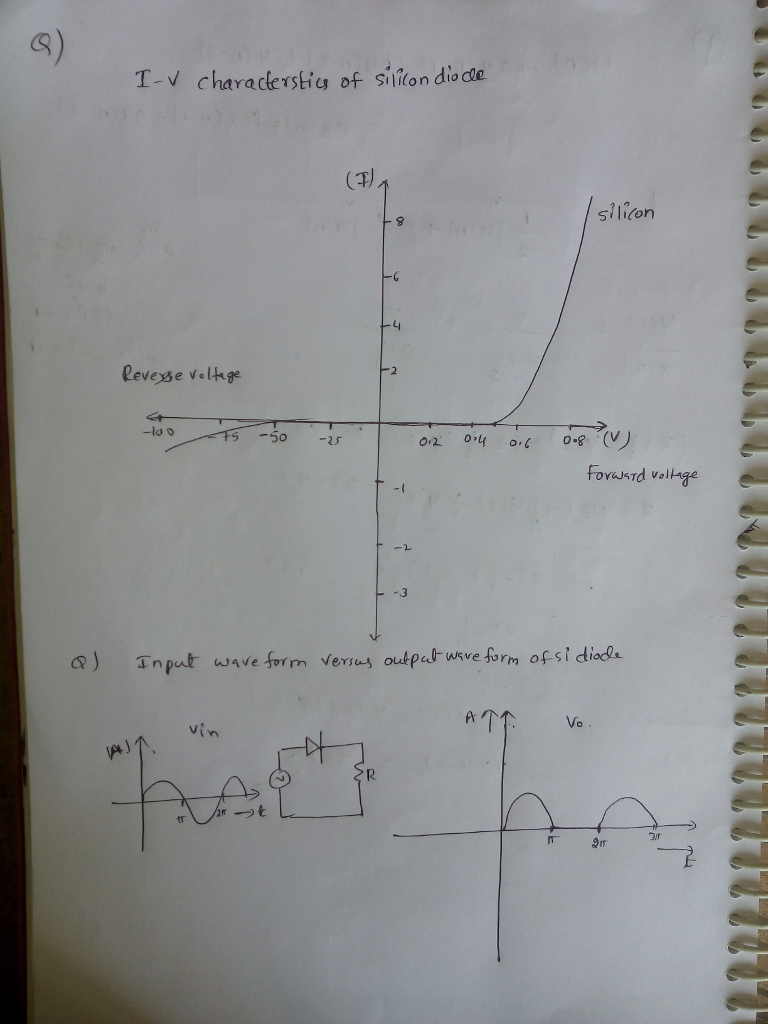 Q)
I-V characterstics of silicon diode
(I)
silicon
8
6
4
2
Reverse voltage
-100 -75 -50 -25 0.2 0.4 0.6 0.8 (V)
Forward voltage
-1
-2
-3
Q) Input wave form versus output wave form of si diode
Vin
A Vo.
R
π 2π t
π 2π 3π
t